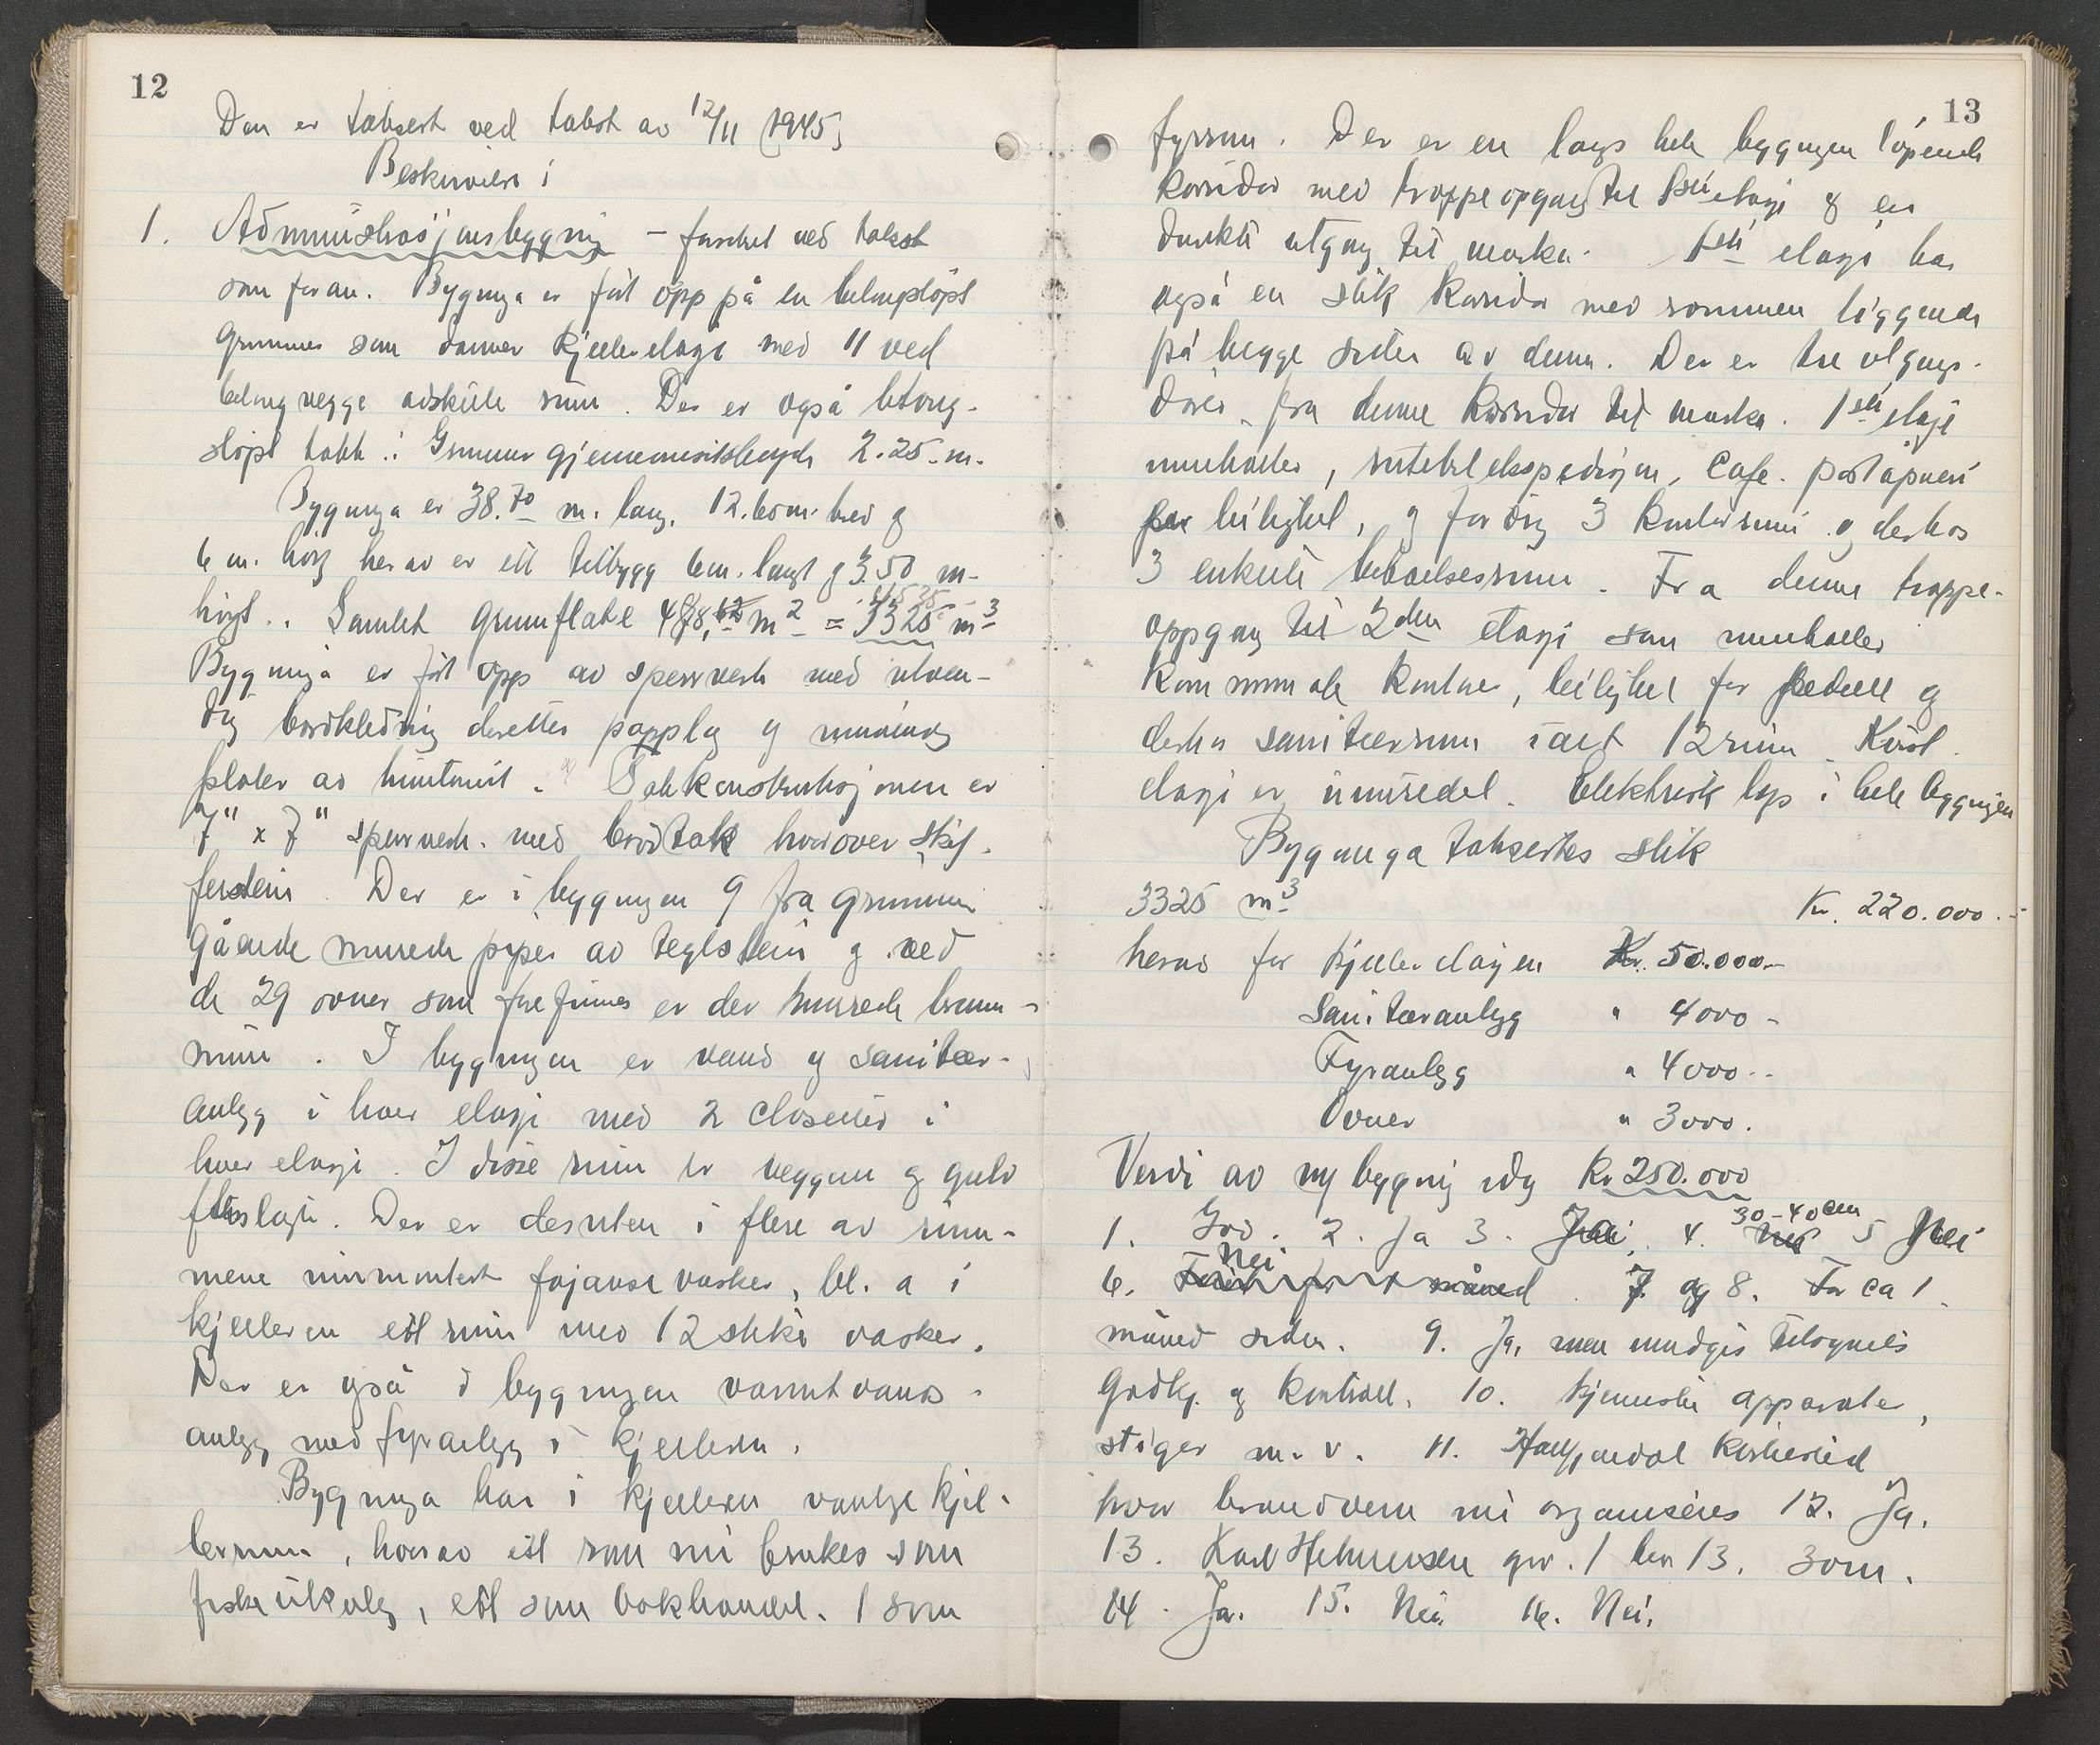 12
Den er taksert ved takst av 12/11 (1945)
Beskrivelse i
1. Administrasjonsbygning – forrettet ved takst
som foran. Bygninga er ført opp på en betongstøpt
grunnmur som danner kjelleretasje med 11 ved
betongvegge adskilte rum. Der er også betong-
støpt takk.: Grunnmur gjennemsnitshøyde 2.25 m.
Bygninga er 38.70 m. lang, 12.60 m. bred og
6 m. høg herav er ett tilbygg 6 m. langt og 3.50 m.
høgt.. Samlet grunnflate 488, m2 = 3325 m3
Bygninga er ført opp av sperrverk med utven-
dig bordkledning deretter papplag og innvendig
plater av huntonit. Takkonstruksjonen er
7" x 7" sperrverk. med bordtak hvorover skif-
ferstein. Der er i bygningen 9 fra grunnmur
gående murede piper av teglstein og ved
de 29 ovner som forefinnes er der murede brann-
mur. I bygningen er vand og sanitær-
anlegg i hver etasje med 2 closetter i
hver etasje. I disse rum er veggene og gulv
fliselagte. Der er desuten i flere av rum-
mene innmontert fajanse vasker, bl. a i
kjelleren ett rum med 12 stkr vasker.
Der er også i bygningen varmtvands-
anlegg med fyranlegg i kjelleren.
Bygninga har i kjelleren vanlige kjel-
lerrum, hvorav ett som nu brukes som
fiskeutsalg, ett som bokhandel. 1 som
13
fyrrum. Der er en langs hele bygningen løpende
korridor med troppeopgang til 1ste etasje og en
direkte utgang til marka. 1ste etasje har
også en slik korridor med rommene liggende
på begge sider av denne. Der er tre utgangs-
dører fra denne korridor til marka. 1ste etasje
inneholder, rutebilekspedisjon, Cafe. poståpneri
leilighet, og forøvrig 3 kontorrum og derhos
3 enkelte beboelsesrum. Fra denne troppe-
oppgang til 2den etasje som inneholder
Kommunale kontorer, leilighet for pedell og
derhos sanitærrum i alt 12 rum. Kvist
etasje er uinnredet. Elektrisk lys i hele bygningen
Bygninga takseres slik
3325 m3 Kr. 220.000.-
herav for kjelleretasjen Kr. 50.000.-
Sanitæranlegg " 4000 -
Fyranlegg " 4000.-
Ovner " 3000.
Verdi av ny bygning idag Kr 250.000
1. God. 2. Ja 3. Ja. 4. 30-40 cm 5 Nei
6. Nei 7. og 8. For ca 1
måned siden. 9. Ja, men unndgis tilsynets
godkj. og kontroll. 10. kjemiske apparater,
stiger m. v. 11. Hattfjelldal kirkested
hvor brandvern nu organiseres 12. Ja.
13. Karl Helmersen gnr. 1 bnr 13. 30 m.
14. Ja. 15. Nei. 16. Nei.